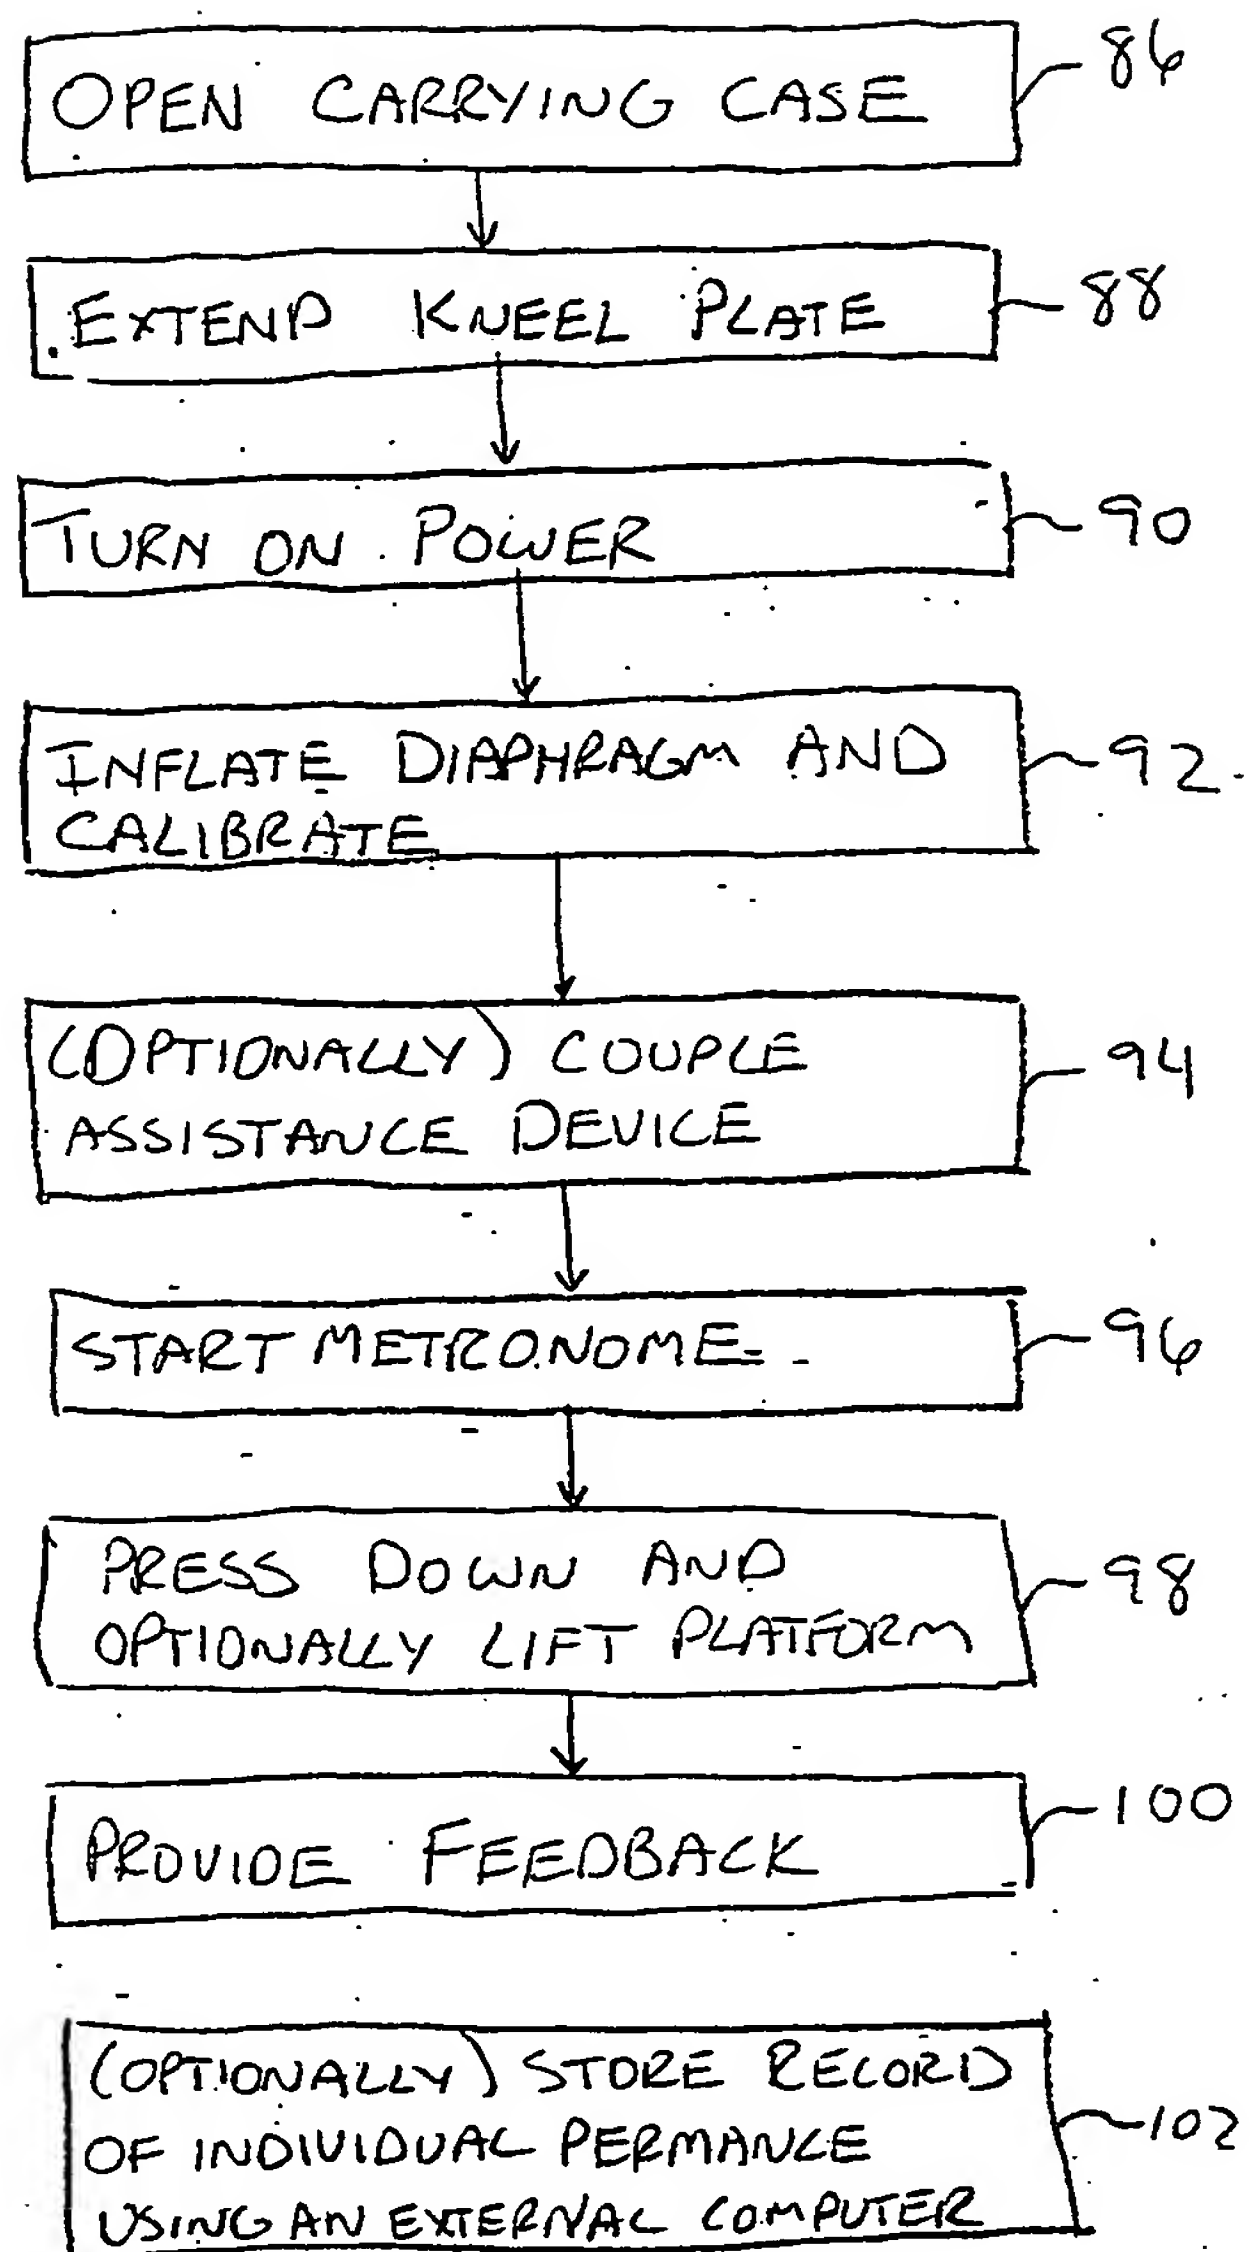 OPEN CARRYING CASE 86
EXTEND KNEEL PLATE 88
TURN ON POWER 90
INFLATE DIAPHRAGM AND 92
CALIBRATE
(OPTIONALLY) COUPLE 94
ASSISTANCE DEVICE
START METRONOME 96
PRESS DOWN AND 98
OPTIONALLY LIFT PLATFORM
PROVIDE FEEDBACK 100
(OPTIONALLY) STORE RECORD
OF INDIVIDUAL PERMANCE 102
USING AN EXTERNAL COMPUTER